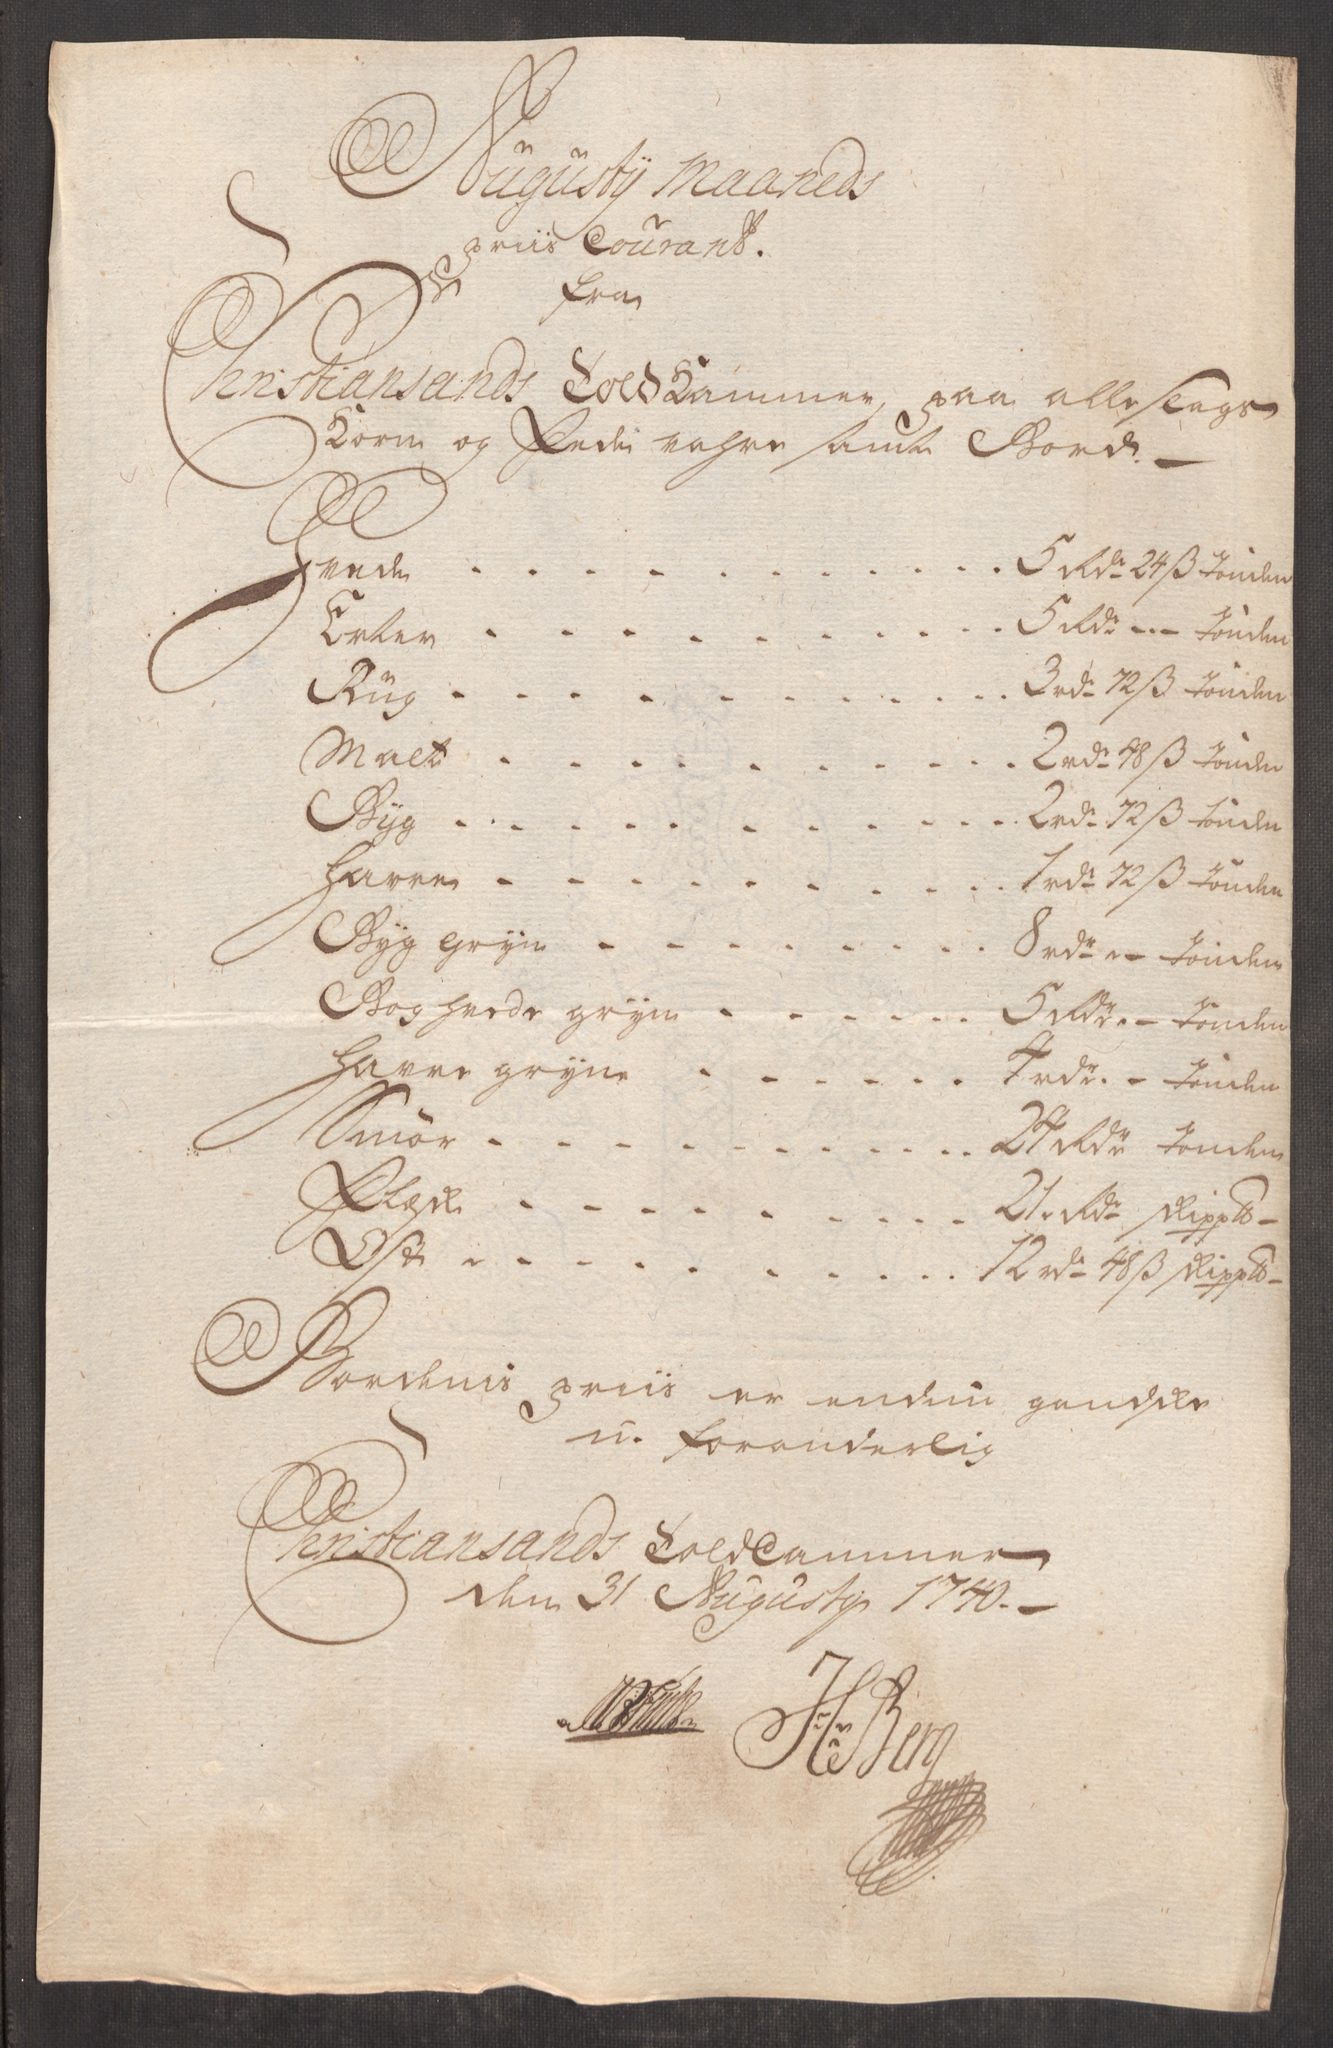 Augustÿ Maaneds
priis Courant.
fra
Christiansands Told Kammer, paa alle slags
Korn og Fede vahre samt Bord.
Hvede . . . . . . . . . . . . 5 Rdr 24 ß tönden
Erter . . . . . . . . . . . 5 Rdr - - tönden
Rüg . . . . . . . . . . . 3 rdr 72 ß tönden
Malt . . . . . . . . . . . 2 rdr 48 ß tönden
Byg . . . . . . . . . . . . 2 rdr 72 ß tönden
Havre . . . . . . . . . . 1 rdr 72 ß tönden
Byg gryn . . . . . . . . . 8 rdr - - tönden
Boghvede gryn . . . . . . 5 Rdr. - tönden
Havre gryn . . . . . . 4 rdr. - tönden
Smör . . . . . . . . . . 24 Rdr tönden
Flesk . . . . . . . . . . 21. Rdr Skipp℔ -
Ost . . . . . . . . . . 12 rdr 48 ß Skipp℔ -
Bordenis priis er endnu gandske
u-foranderlig
Christiansands ToldCammer
den 31 Augusty 1740. -
H Berg